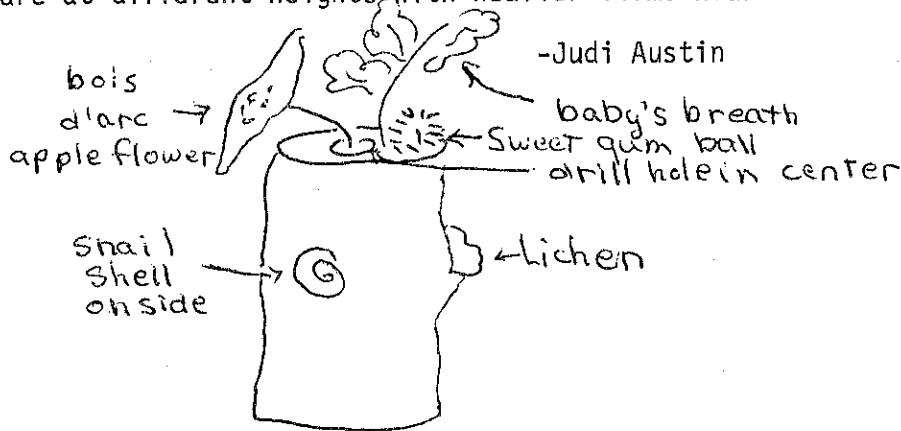 are at different heights
-Judi Austin
bois
d'arc
apple flower
baby's breath
Sweet gum ball
drill hole in center
Snail
Shell
on side
Lichen